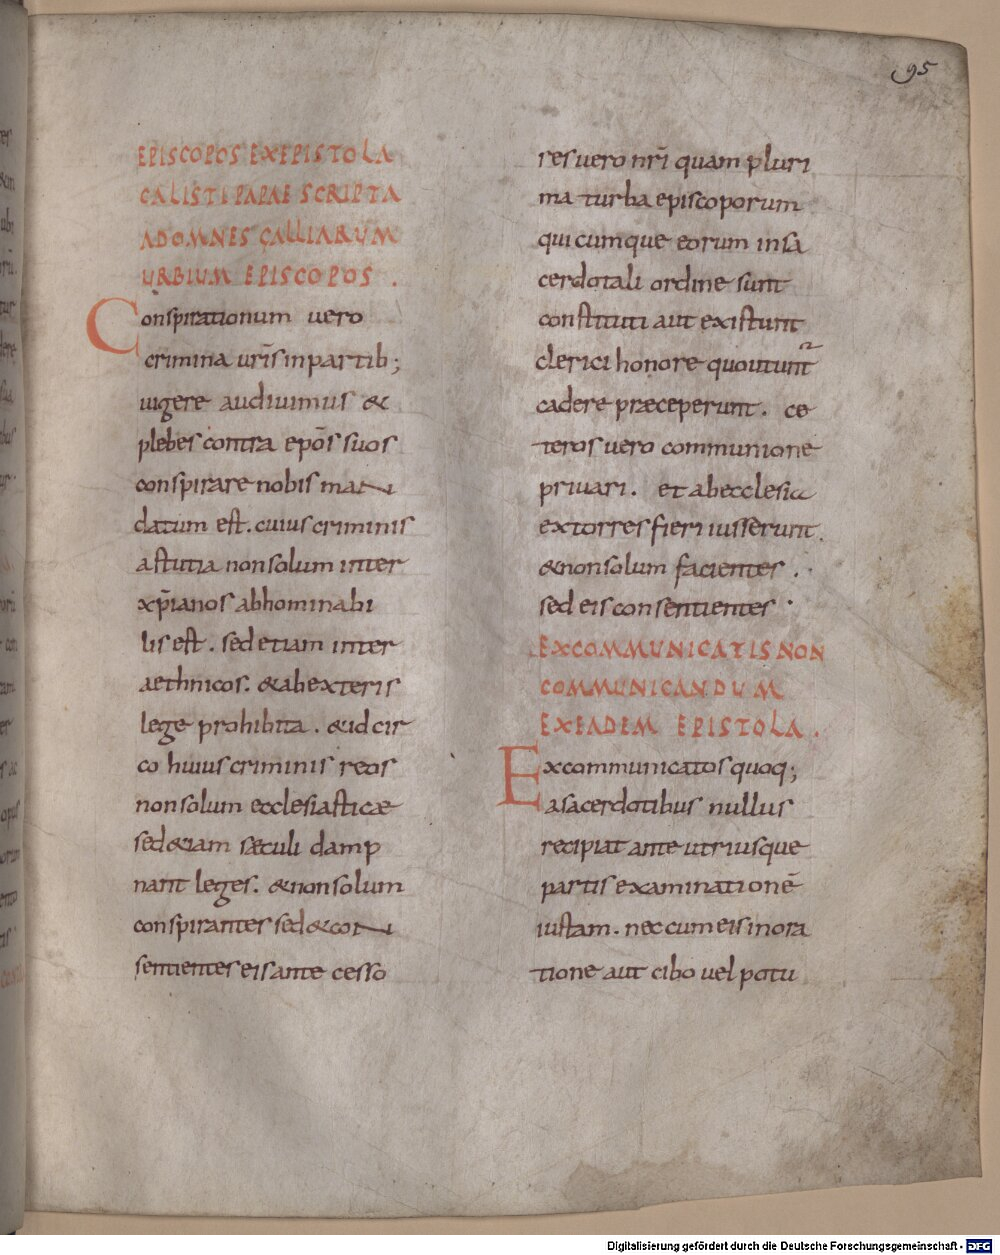 95
EPISCOPOS EX EPISTOLA
CALISTI PAPAE SCRIPTA
AD OMNES GALLIARUM
URBIUM EPISCOPOS .
Conspirationum vero
crimina ur̄is in partib;
uigere audiuimus &
plebes contra ep̄os suos
conspirare nobis man
datum est. cuius criminis
astutia non solum inter
xp̄ianos abhominabi
lis est . sed etiam inter
aethnicos . & ab exteris
lege prohibita . & idcir
co huius criminis reos
non solum ecclesiasticæ
sed &iam sæculi damp
nant leges . & non solum
conspirantes sed & con
sentientes eis antecesso
res uero nr̄i quam pluri
ma turba episcoporum
quicumque eorum in sa
cerdotali ordine sunt
constituti aut existunt
clerici honore quo utunt᷑
cadere præceperunt . ce
teros vero communione
priuari . et ab ecclesia
extorres fieri iusserunt .
& non solum facientes .
sed eis consentientes .
EXCOMMUNICATIS NON
COMMUNICANDUM
EX EADEM EPISTOLA .
Excommunicatos quoq;
a sacerdotibus nullus
recipiat ante utriusque
partis examinationē
iustam . nec cum eis in ora
tione aut cibo uel potu
Digitalisierung gefördert durch die Deutsche Forschungsgemeinschaft - DFG